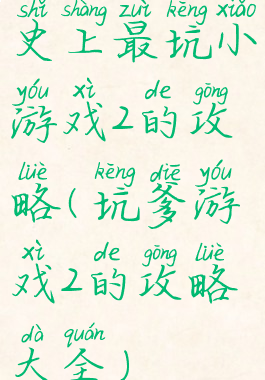 shǐ shàng zuì kēng xiǎo
史上最坑小
yóu xì de gōng
游戏2的攻
lüè kēng diē yóu
略(坑爹游
xì de gōng lüè
戏2的攻略
dà quán
大全)